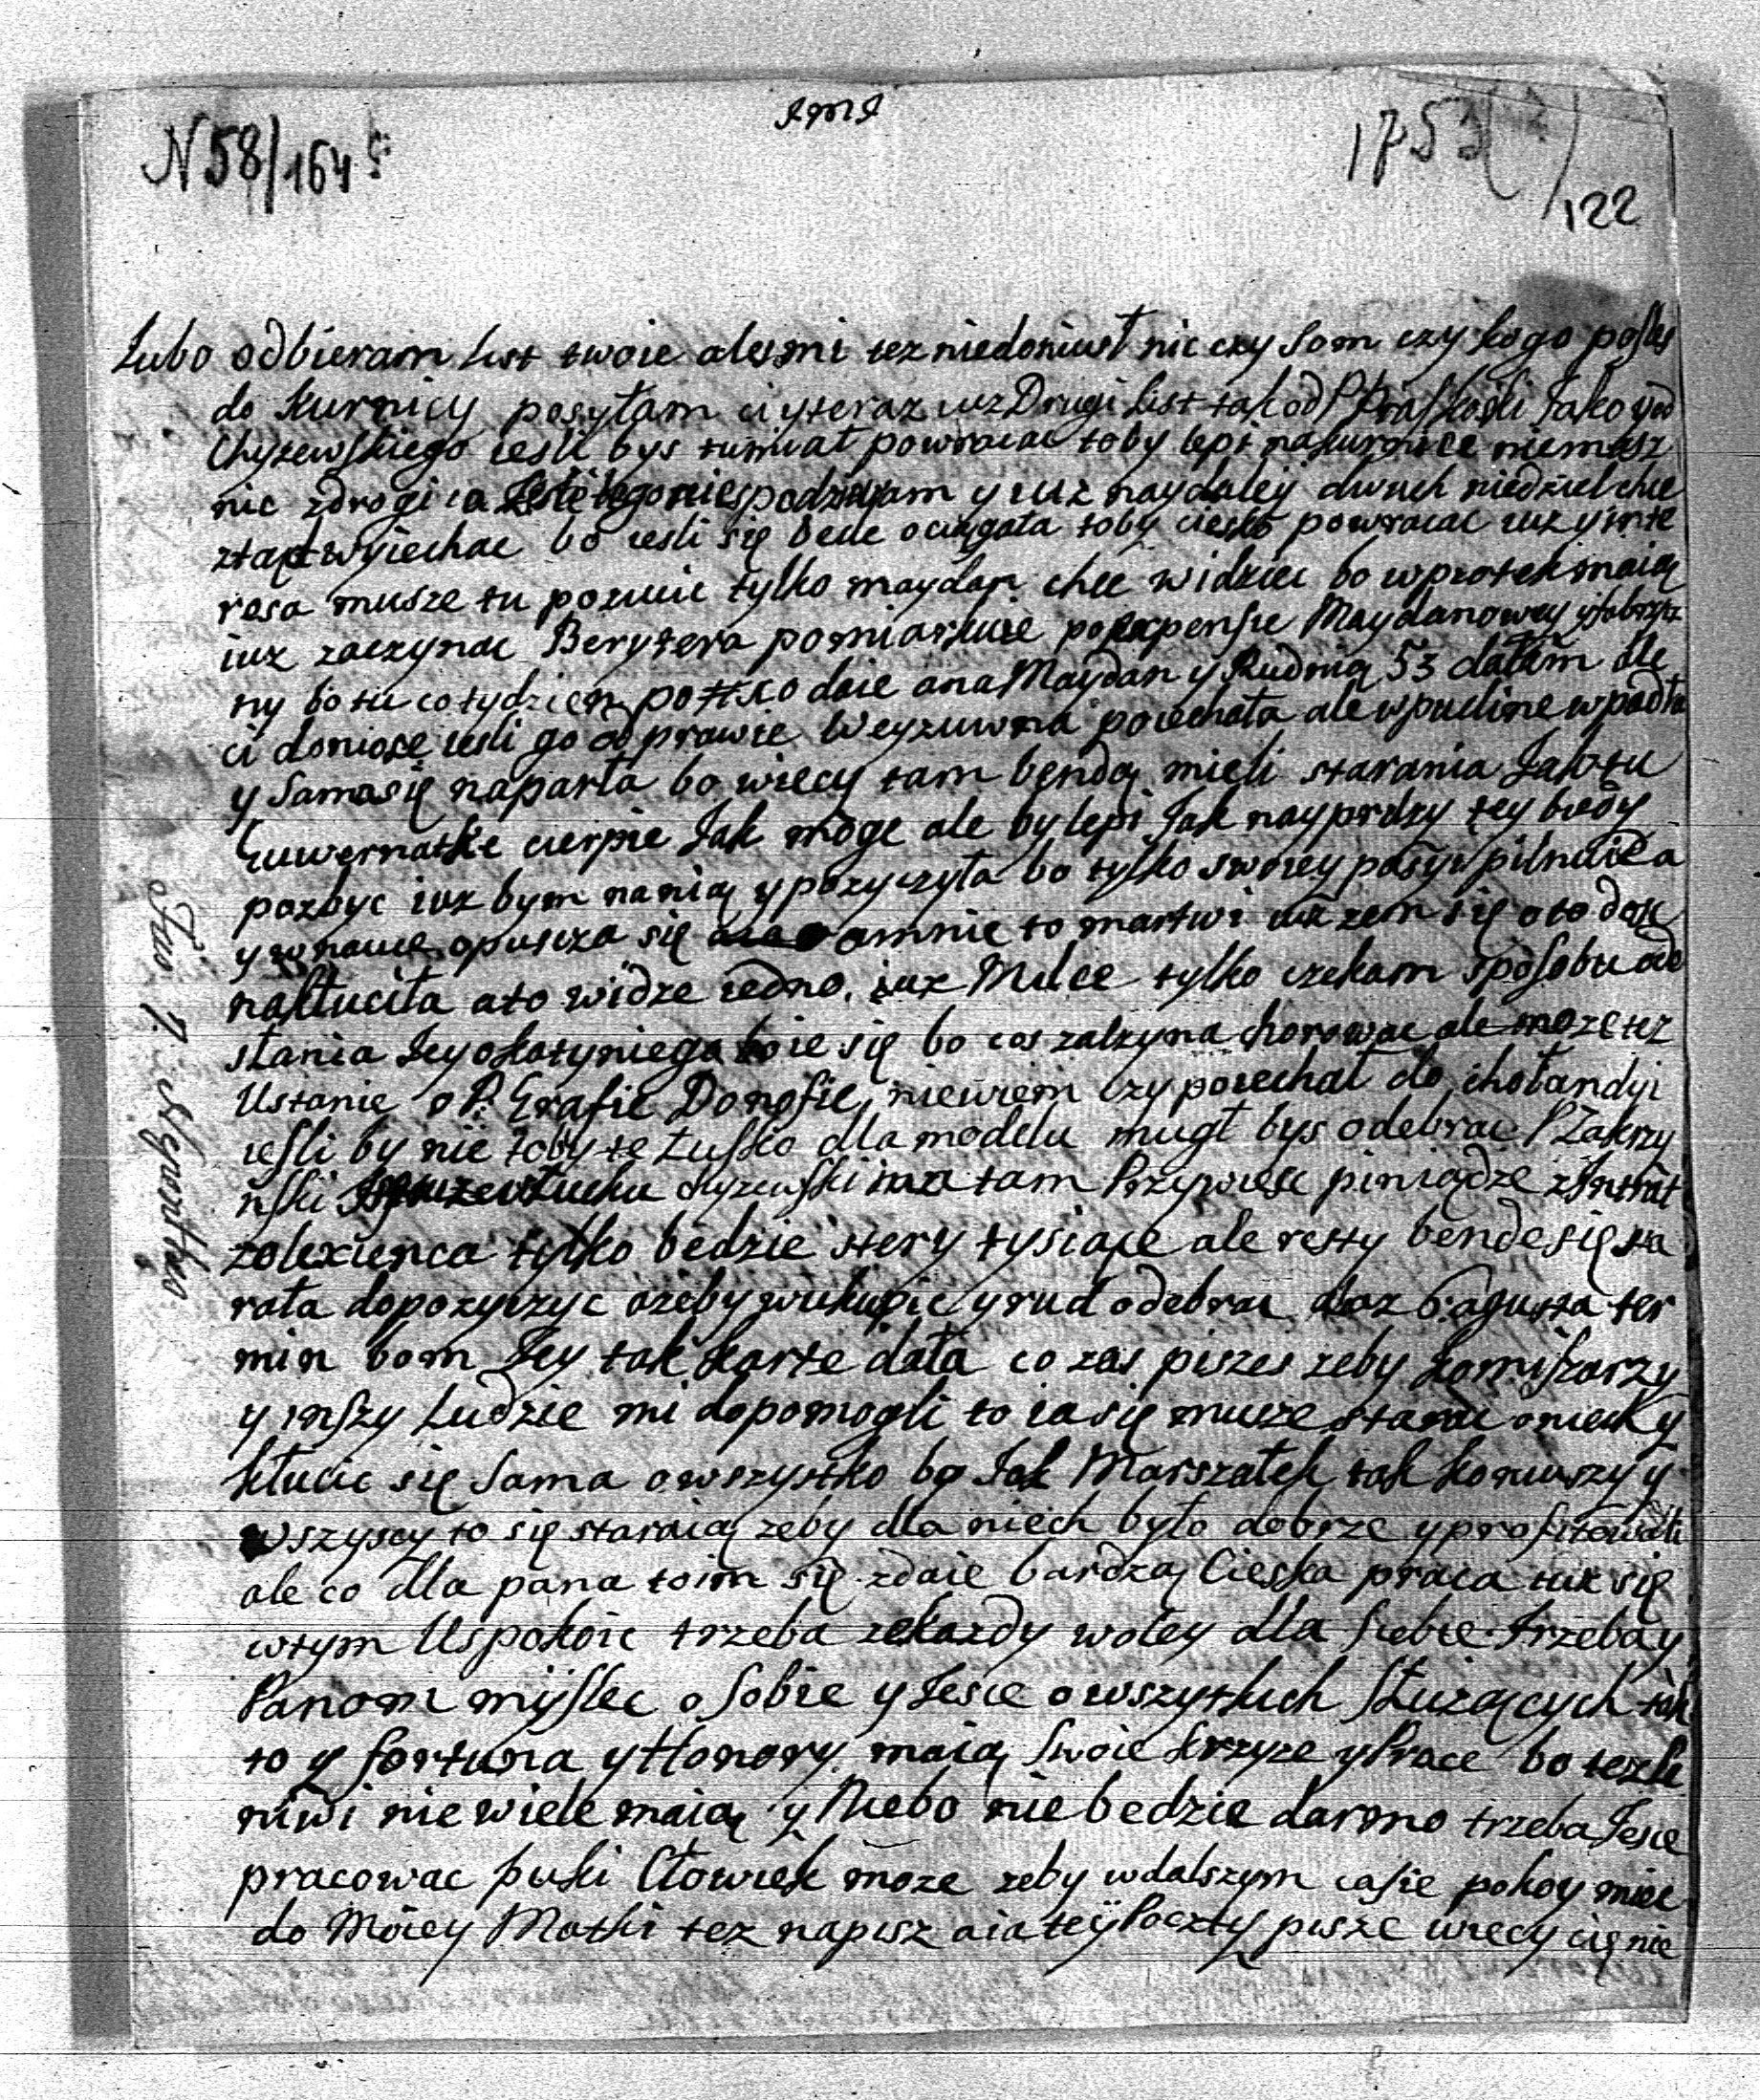 N 58/164
1753
122
Lubo odbieram List twoie aleśmi tez niedoniusł nic czy som czy kogo posles
do Kurnicy posyłam ci y teraz iuz Drugi List tak od P Jako y od
Chyzewskiego iesli bys tu miał powracac toby lepi na kurnice niemasz
nic zdrogi ia tego niespodziwam y iuz naydaley dwuch niedziel chce
ztąd wyiechac bo iesli się bede ociągała toby ciesko powracac iuz y inte
resa musze tu pozucic tylko maydan chce widziec bo wpiotek maią
iuz zaczynac Berytera pomiarkuie po expensie Maydanowey y fabrycz
ny bo tu co tydzien daie ana Maydan y Rudnią 53 dałam ale
ci doniose iesli go odprawie Weyzuwna poiechała ale wpucline wpadła
y Sama się naparła bo wiecy tam bendą mieli starania Jak tu
Guwernatke cierpie Jak moge ale by lepi Jak nayprdzy tey biedy
pozbyc iuz bym na nią y pozyczyła bo tylko swoiey pasyi pilnuie a
opuscza się amnie to martwi iuz zem się oto dosc
nakłuciła ato widze iedno, iuz Milce tylko czekam sposobu ode
słania Jey okatyniego boie się bo cos zalzyna chorowac ale moze tez
Ustanie o P. Grafie Donofie niewiem czy poiechał do chołandyi
iesli by nie toby te Łusko dla modelu mugł bys odebrac P Zakrzy
nski chyzewski ma tam Przywiesc piniądze z Intrat
zolexienca tylko bedzie stery tysiące ale resty bende się sta
rała dopozyczyc ozeby wikupic y rud odebrac 6 agusta ter
min bom Jey tak karte dała co zas piszes zeby komisarzy
y inszy Ludzie mi dopomogli to ia się musze starac onich y
kłucic się Sama owszystko bo Jak Marszałek tak koniuszy y
wszyscy to się staraią zeby dla niech było dobrze y profitowali
ale co dla pana to im się zdaie bardzo Cieska praca iuz się
wtym Uspokoic trzeba ze kazdy woley dla Siebie trzeba y
Panom myslec o Sobie y Jesce owszytkich Słuzących tak
to y fortuna y Honory maią Swoie krzyze y Prace bo tez le
niwi niewiele maią y Niebo nie bedzie darmo trzeba Jesce
pracowac puki Cłowiek moze zeby wdalszym casie pokoy miec
do Moiey Matki tez napisz aia tey Poczty pisze wiecy cię nie